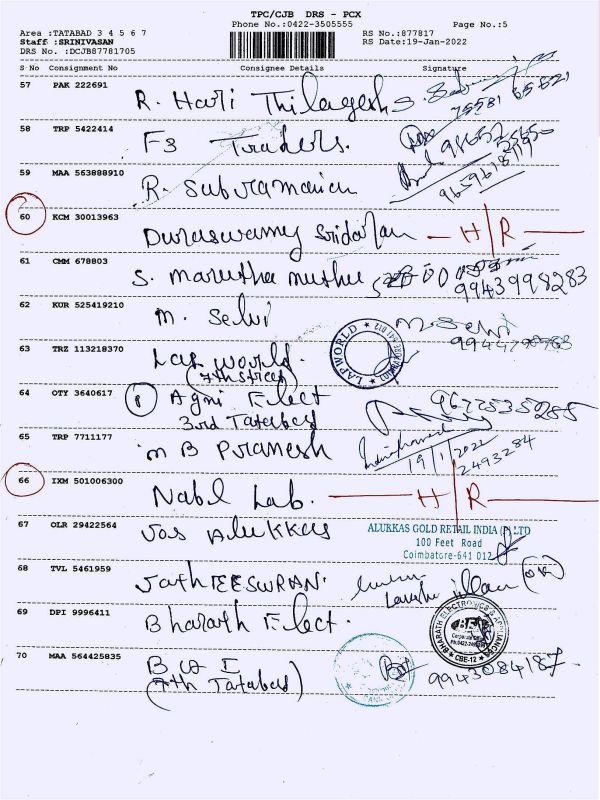 TPC/CJB DRS - PCX
Phone No.:0422-3505555
Page No.:5
Area :TATABAD 3 4 5 6 7
Staff :SRINIVASAN
DRS No. :DCJB87781705
RS No.:877817
RS Date:19-Jan-2022
S No Consignment No Consignee Details Signature
57 PAK 222691 R. Hari Thilagesh S.
75581 65521
58 TRP 5422414 F3 Traders.
59 MAA 563888910 R. Subramanian
9659618950
60 KCM 30013963 Duraswamy Sridaran H/R
61 CMM 678803 S. Marutha muthu
9943998283
62 KUR 525419210 M. Selvi M. Selvi
63 TRZ 113218370 Lap World.
(7th Street)
LAPWORLD
64 OTY 3640617 Agni Elect
3rd Tatabad
65 TRP 7711177 M B Pramesh
19/1/2022
2493284
66 IXM 501006300 Nabl Lab. H/R
67 OLR 29422564 Jos Alukkas
ALUKKAS GOLD RETAIL INDIA (P) LTD
100 Feet Road
Coimbatore-641 012
68 TVL 5461959 Jothteeswran.
69 DPI 9996411 Bharath Elect.
BHARATH ELECTRONICS & APPLIANCES
CBE-12
70 MAA 564425835 B O I
(7th Tatabad)
9943084187